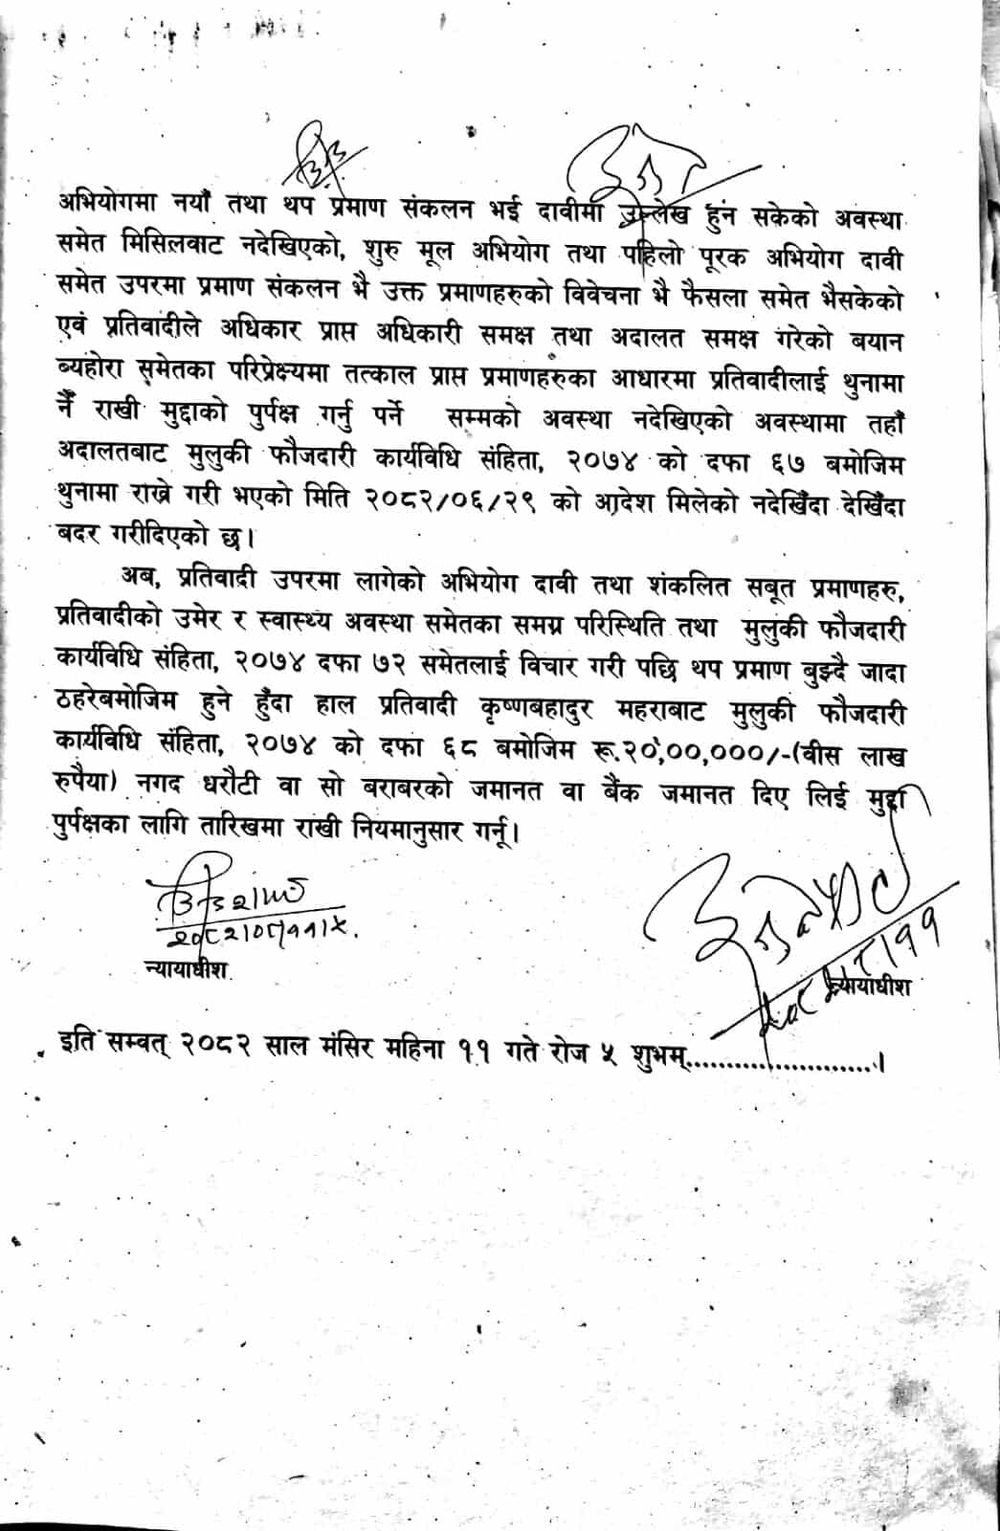 अभियोगमा नयाँ तथा थप प्रमाण संकलन भई दावीमा उल्लेख हुन सकेको अवस्था
समेत मिसिलवाट नदेखिएको, शुरु मूल अभियोग तथा पहिलो पूरक अभियोग दावी
समेत उपरमा प्रमाण संकलन भै उक्त प्रमाणहरुको विवेचना भै फैसला समेत भैसकेको
एवं प्रतिवादीले अधिकार प्राप्त अधिकारी समक्ष तथा अदालत समक्ष गरेको बयान
ब्यहोरा समेतका परिप्रेक्ष्यमा तत्काल प्राप्त प्रमाणहरुका आधारमा प्रतिवादीलाई थुनामा
नैं राखी मुद्दाको पुर्पक्ष गर्नु पर्ने सम्मको अवस्था नदेखिएको अवस्थामा तहाँ
अदालतबाट मुलुकी फौजदारी कार्यविधि संहिता, २०७४ को दफा ६७ बमोजिम
थुनामा राख्ने गरी भएको मिति २०८२/०६/२९ को आदेश मिलेको नदेखिँदा देखिँदा
बदर गरीदिएको छ।
अब, प्रतिवादी उपरमा लागेको अभियोग दावी तथा शंकलित सबूत प्रमाणहरु,
प्रतिवादीको उमेर र स्वास्थ्य अवस्था समेतका समग्र परिस्थिति तथा मुलुकी फौजदारी
कार्यविधि संहिता, २०७४ दफा ७२ समेतलाई विचार गरी पछि थप प्रमाण बुझ्दै जादा
ठहरेबमोजिम हुने हुँदा हाल प्रतिवादी कृष्णबहादुर महराबाट मुलुकी फौजदारी
कार्यविधि संहिता, २०७४ को दफा ६८ बमोजिम रू.२०,००,०००/-(वीस लाख
रुपैया) नगद धरौटी वा सो बराबरको जमानत वा बैंक जमानत दिए लिई मुद्दा
पुर्पक्षका लागि तारिखमा राखी नियमानुसार गर्नू।
२०८२।०८।११।५.
न्यायाधीश
न्यायाधीश
इति सम्वत् २०८२ साल मंसिर महिना ११ गते रोज ५ शुभम्........................।